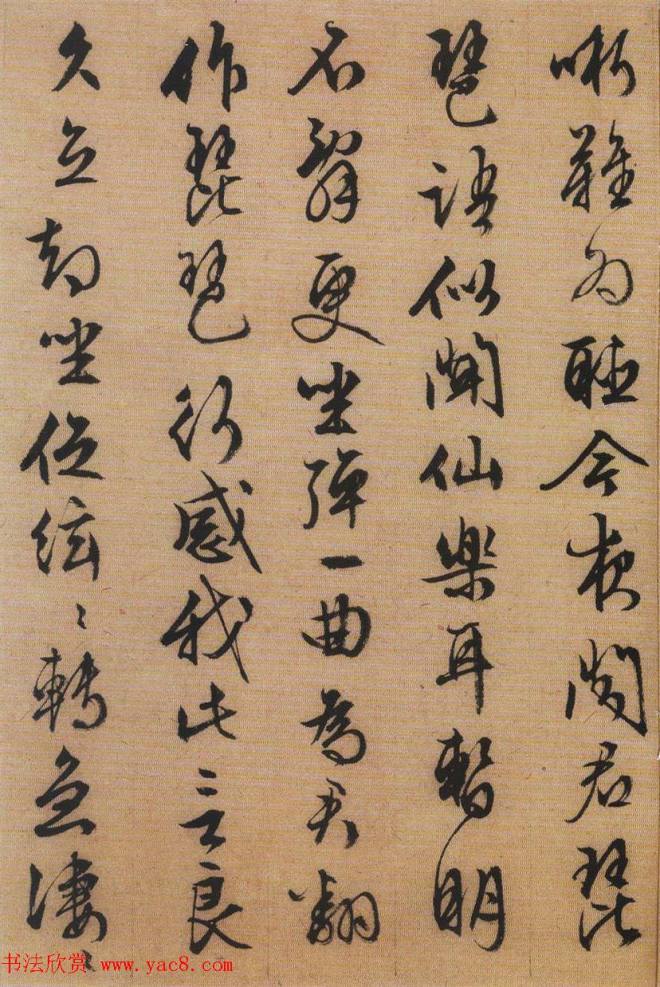 哳難為聽今夜聞君琵
琶語似聞仙樂耳暫明
辭更坐彈一曲為君翻
作琵琶行感我此言良
久立却坐促絃〻轉急淒〻
书法欣赏 www.yac8.com